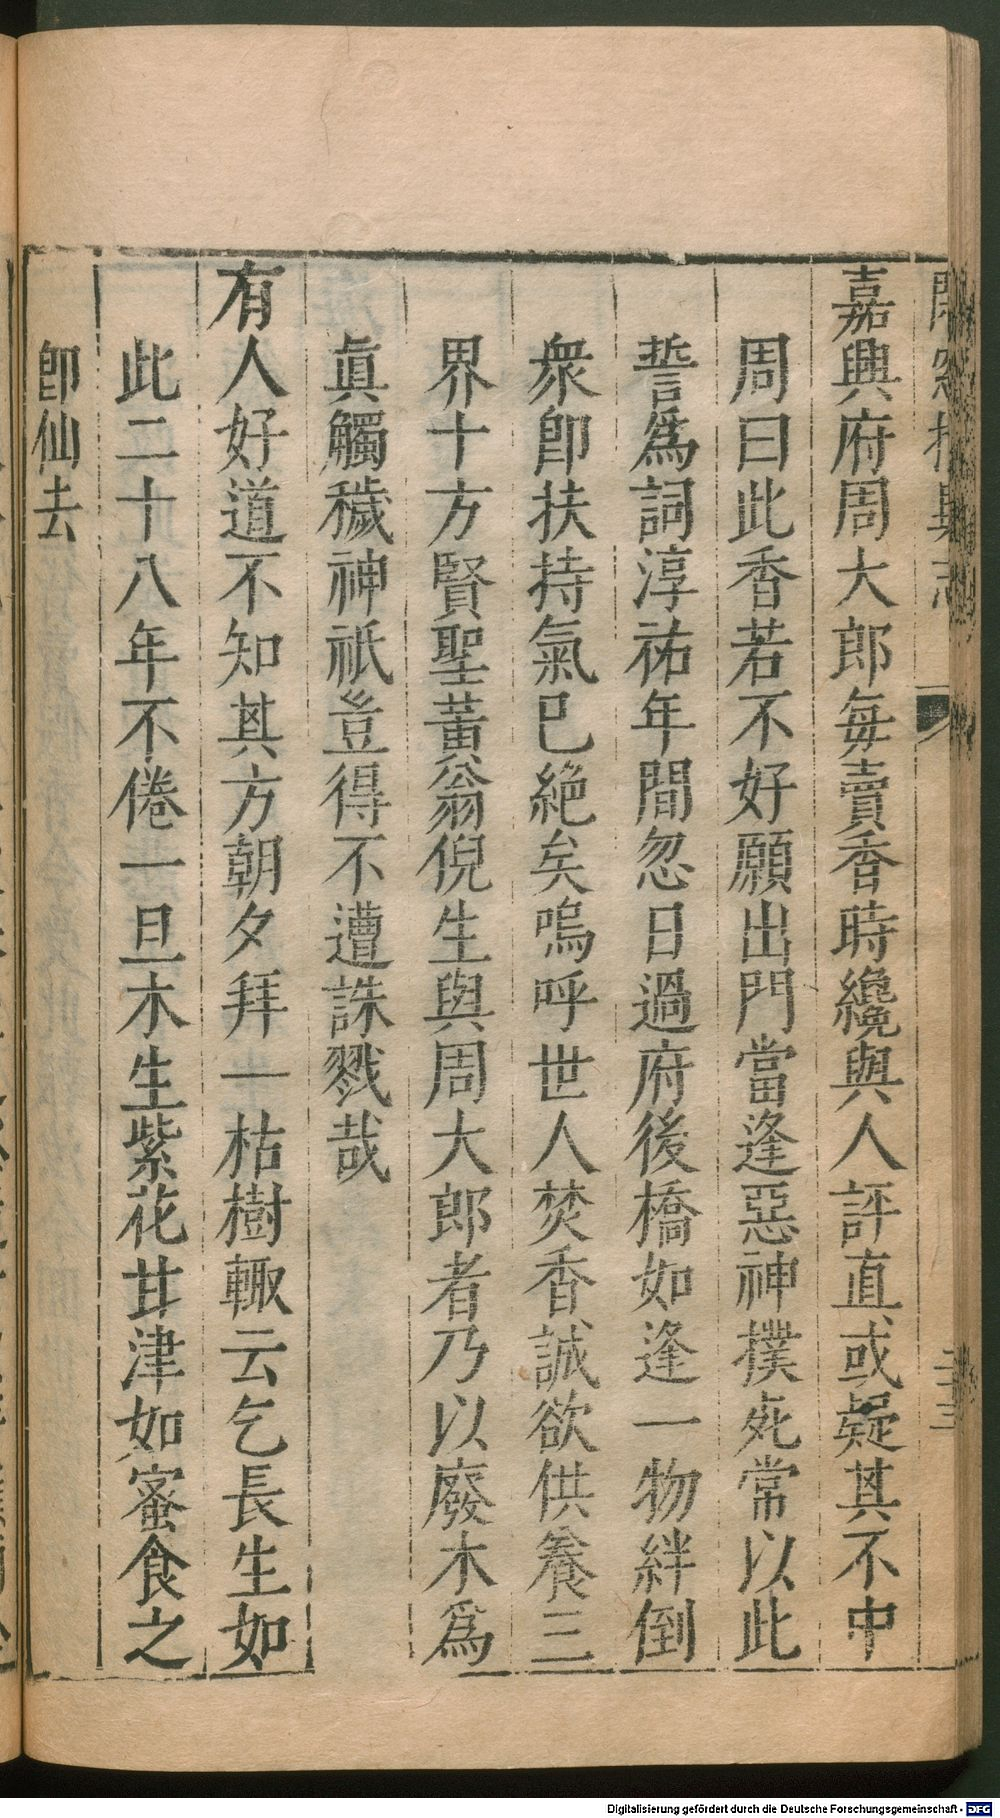 嘉興府周大郎每賣香時纔與人評直或疑其不中
周曰此香若不好願出門當逢惡神撲死常以此
誓爲詞淳祐年間忽日過府後橋如逢一物絆倒
衆卽扶持氣已絕矣嗚呼世人焚香誠欲供養三
界十方賢聖黃翁倪生與周大郎者乃以廢木爲
眞觸穢神祇豈得不遭誅戮哉
有人好道不知其方朝夕拜一枯樹輙云乞長生如
此二十八年不倦一旦木生紫花甘津如蜜食之
卽仙去
Digitalisierung gefördert durch die Deutsche Forschungsgemeinschaft - DFG